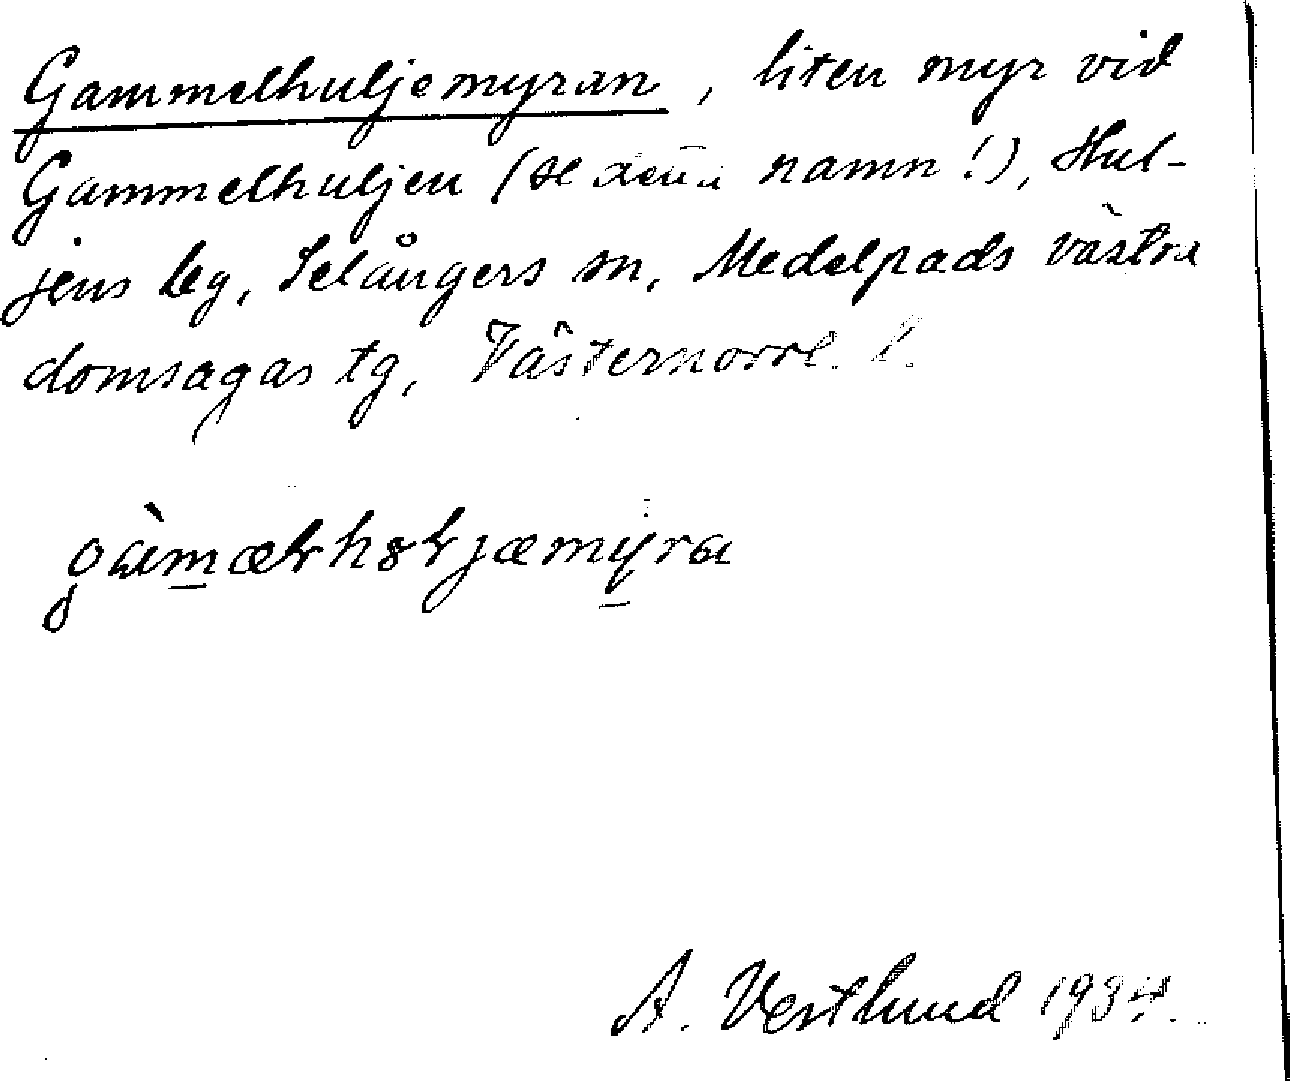 Gammelhuljemyran, liten myr vid
Gammelhuljen (se detta namn!), Hul-
jens by, Selångers sn, Medelpads västra
domsagas tg, Västernorrl. l.
A. Vestlund 1934.